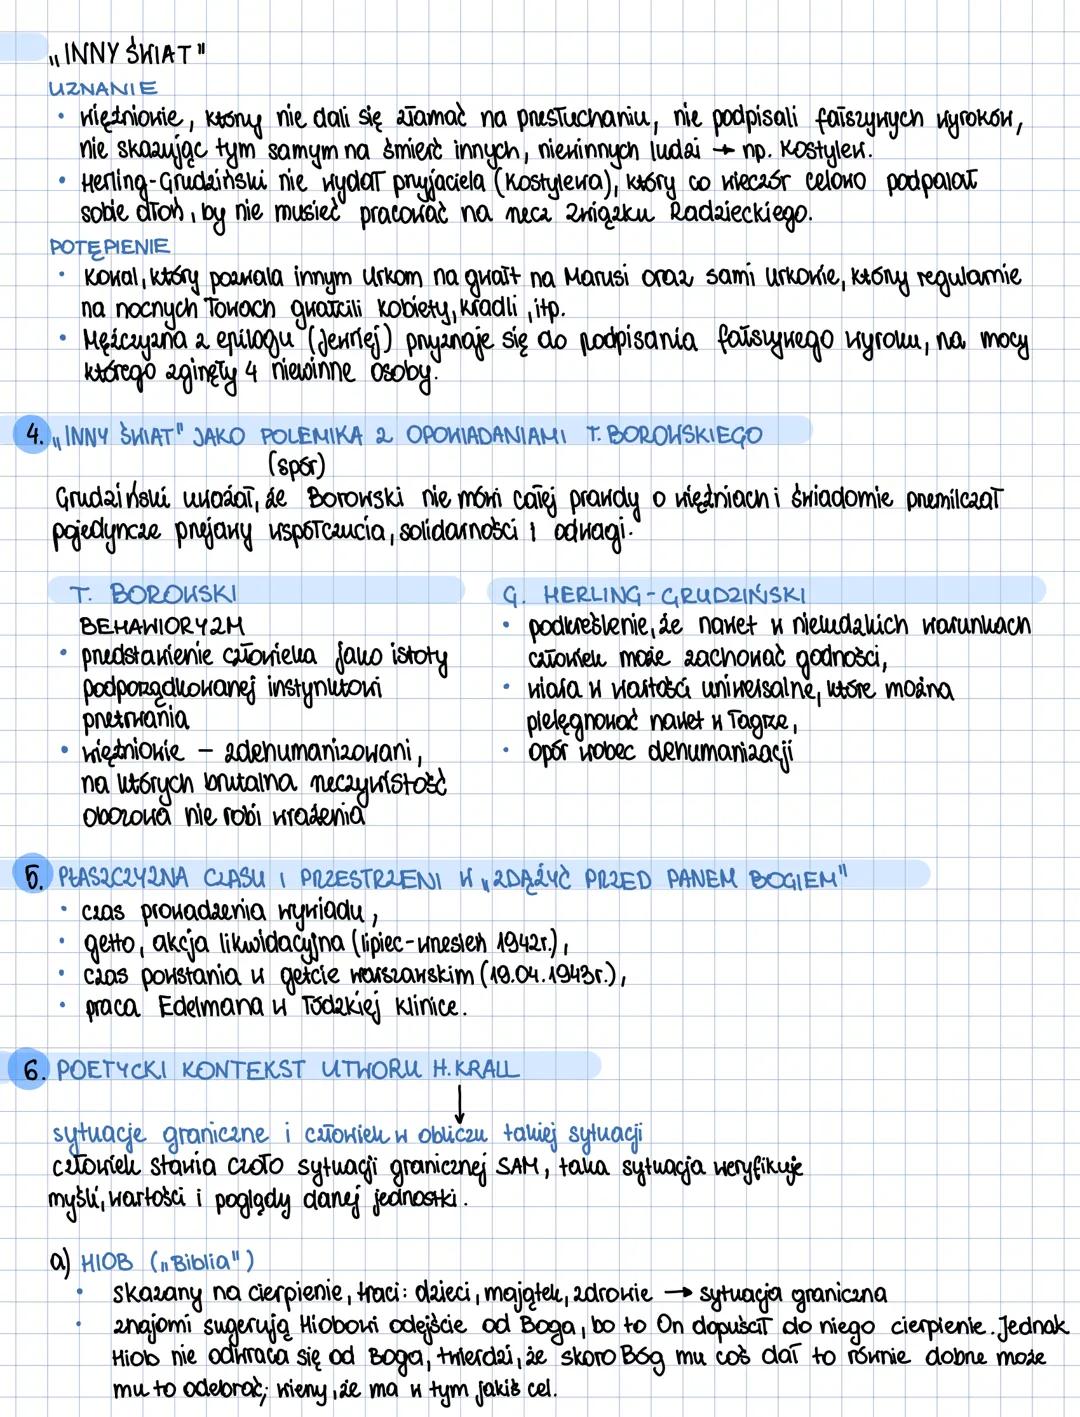 „INNY ŚWIAT"
UZNANIE
• więźniowie, którzy nie dali się złamać na przesłuchaniu, nie podpisali fałszywych wyroków,
nie skazując tym samym na śmierć innych, niewinnych ludzi → np. Kostylew.
• Herling-Grudziński nie wydał przyjaciela (Kostylewa), który co wieczór celowo podpalał
sobie dłoń, by nie musieć pracować na rzecz Związku Radzieckiego.
POTĘPIENIE
• Kowal, który pozwala innym Urkom na gwałt na Marusi oraz sami Urkowie, którzy regularnie
na nocnych łowach gwałcili kobiety, kradli, itp.
• Mężczyzna z epilogu (Jewriej) przyznaje się do podpisania fałszywego wyroku, na mocy
którego zginęły 4 niewinne osoby.
4. „INNY ŚWIAT" JAKO POLEMIKA Z OPOWIADANIAMI T. BOROWSKIEGO
(spór)
Grudziński uważał, że Borowski nie mówi całej prawdy o więźniach i świadomie przemilczał
pojedyncze przejawy współczucia, solidarności i odwagi.
T. BOROWSKI
BEHAWIORYZM
• przedstawienie człowieka jako istoty
podporządkowanej instynktowi
przetrwania
• więźniowie – zdehumanizowani,
na których brutalna rzeczywistość
obozowa nie robi wrażenia
G. HERLING-GRUDZIŃSKI
• podkreślenie, że nawet w nieludzkich warunkach
człowiek może zachować godności,
• wiara w wartości uniwersalne, które można
pielęgnować nawet w łagrze,
• opór wobec dehumanizacji
5. PŁASZCZYZNA CZASU I PRZESTRZENI W „ZDĄŻYĆ PRZED PANEM BOGIEM"
• czas prowadzenia wywiadu,
• getto, akcja likwidacyjna (lipiec-wrzesień 1942r.),
• czas powstania w getcie warszawskim (19.04.1943r.),
• praca Edelmana w łódzkiej klinice.
6. POETYCKI KONTEKST UTWORU H. KRALL
↓
sytuacje graniczne i człowiek w obliczu takiej sytuacji
człowiek stawia czoło sytuacji granicznej SAM, taka sytuacja weryfikuje
myśli, wartości i poglądy danej jednostki.
a) HIOB („Biblia")
• skazany na cierpienie, traci: dzieci, majątek, zdrowie → sytuacja graniczna
• znajomi sugerują Hiobowi odejście od Boga, bo to On dopuścił do niego cierpienie. Jednak
Hiob nie odwraca się od Boga, twierdzi, że skoro Bóg mu coś dał to równie dobrze może
mu to odebrać; wierny, że ma w tym jakiś cel.